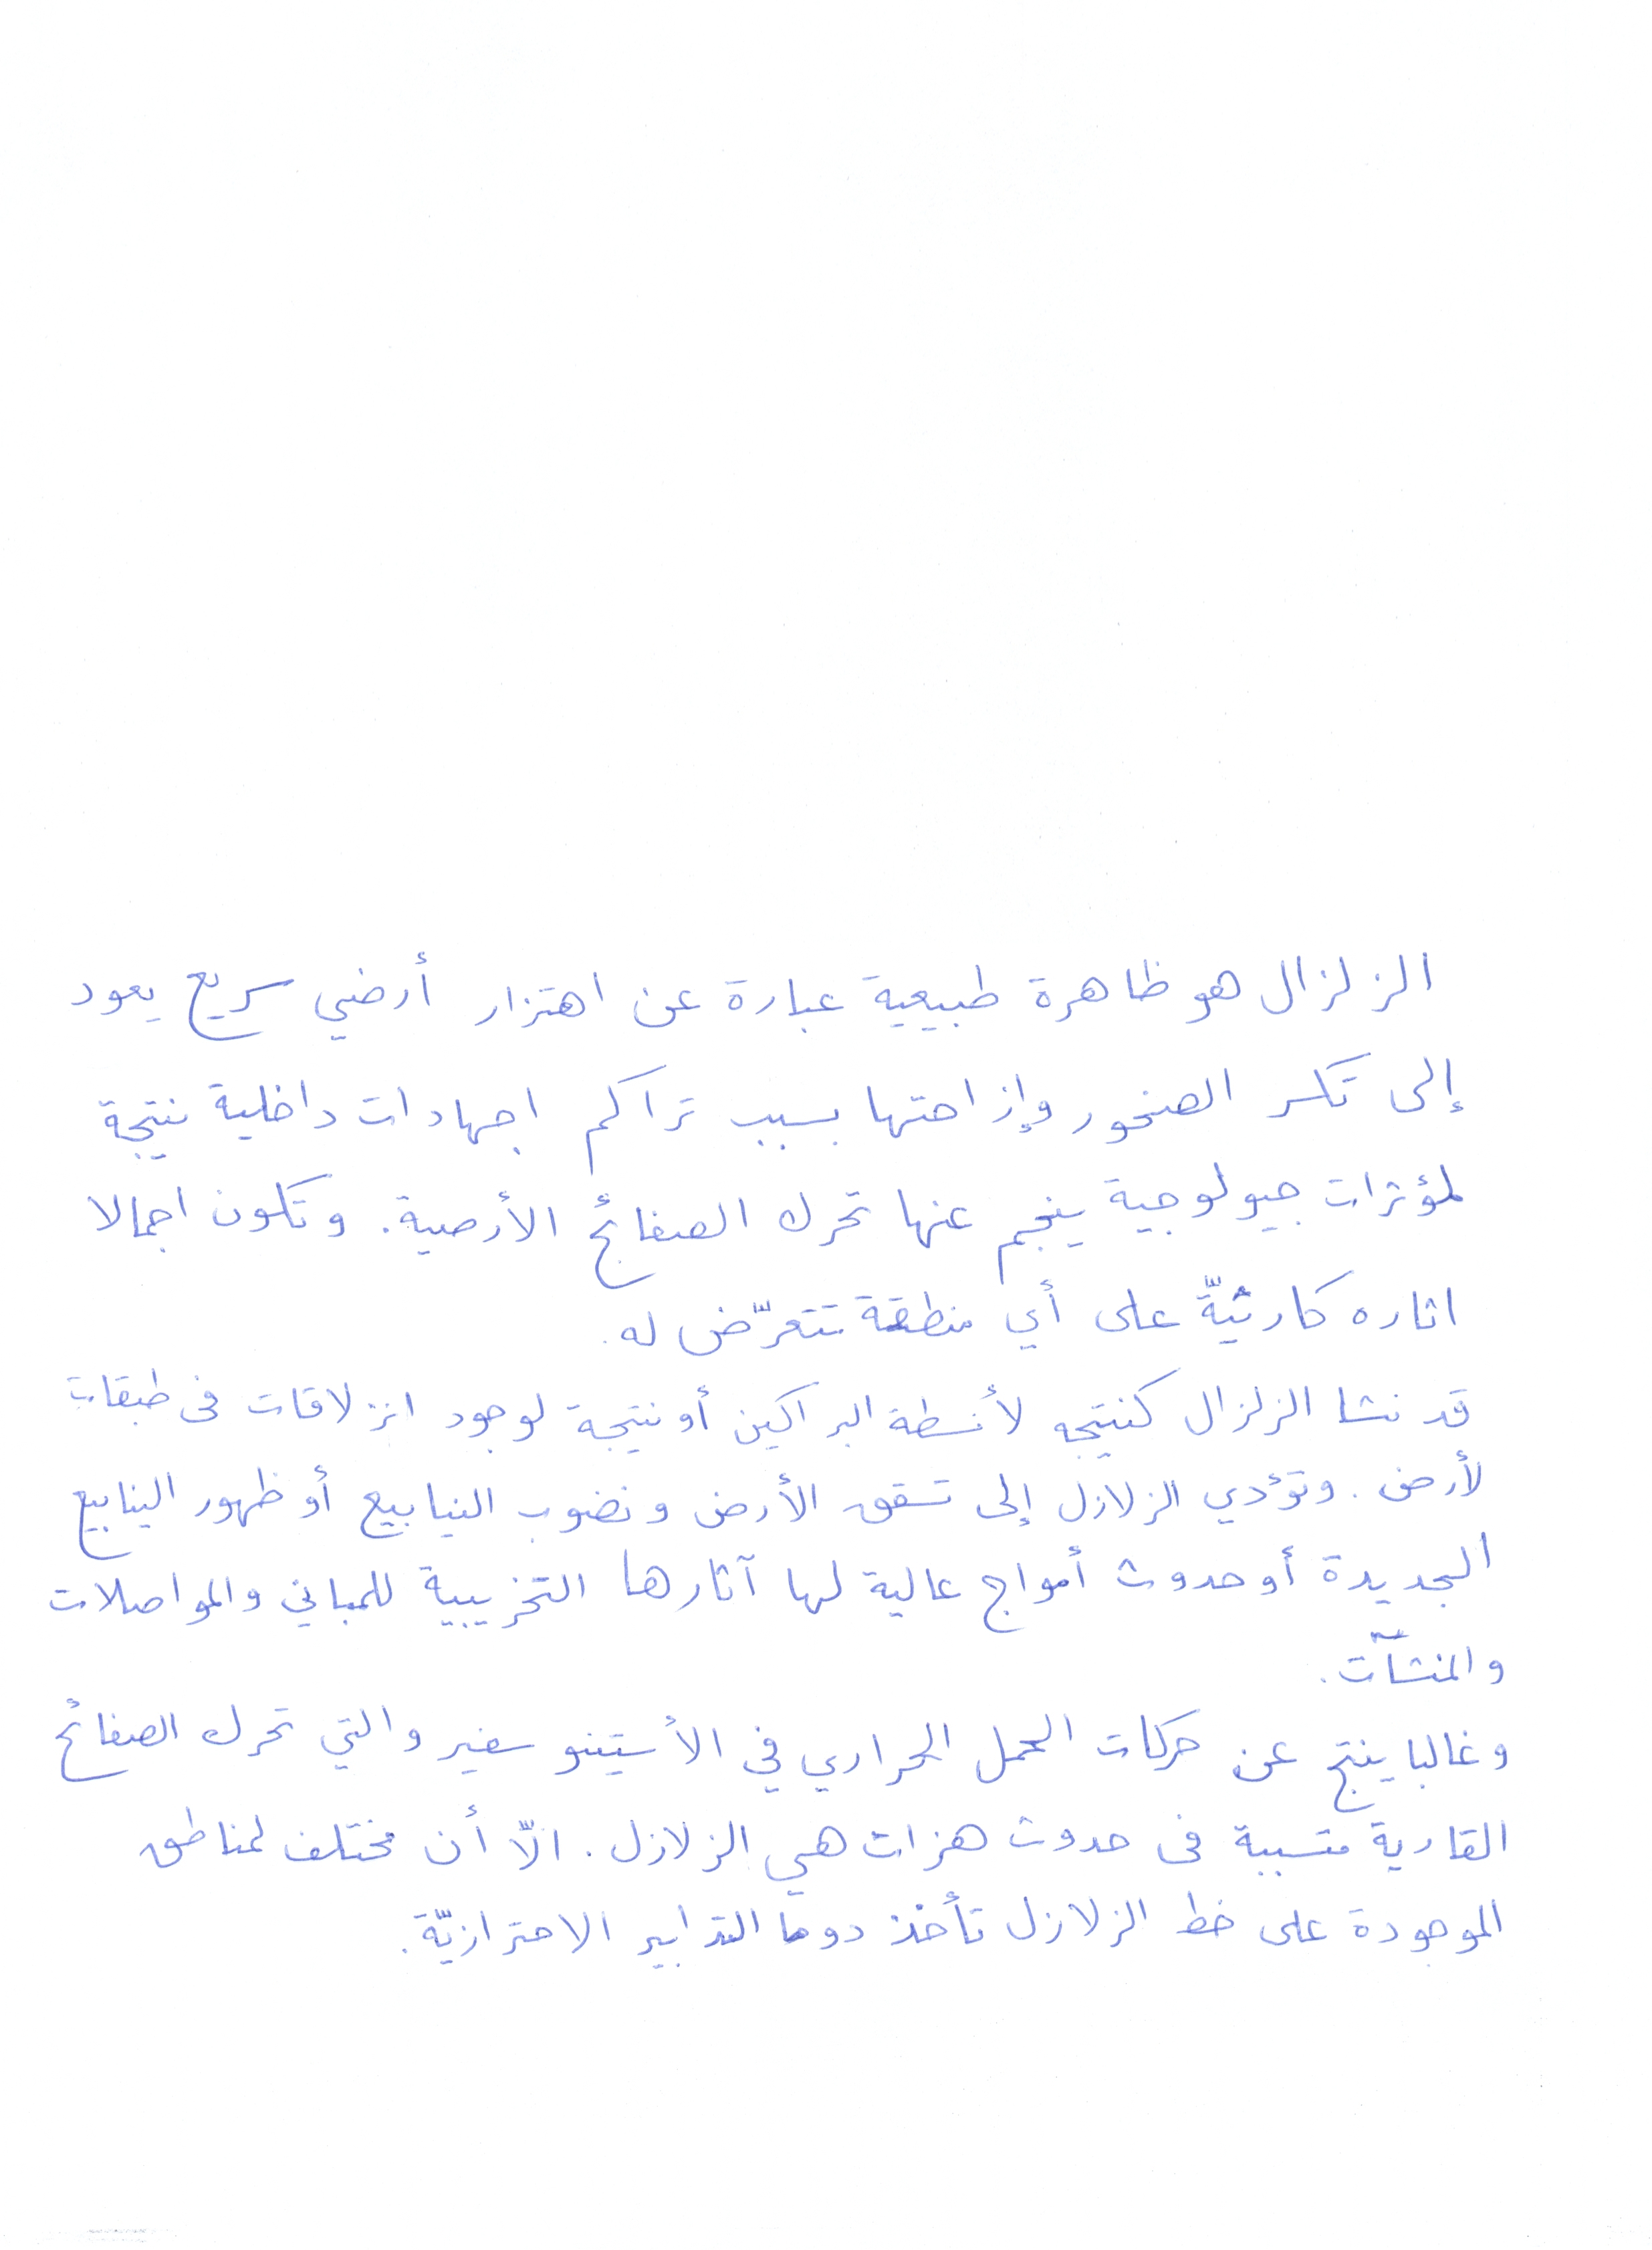 الزلزال هو ظاهرة طبيعية عبارة عن اهتزار أرضي سريع يعود
إلى تكسر الصخور وإزاحتها بسبب تراكم اجهادات داخلية نتيجة
لمؤثرات جيولوجية ينجم عنها تحرك الصفائح الأرضية. وتكون اجمالا
اثاره كارثيّة على أي منطقة تتعرّض له.
قد نشا الزلزال كنتيجه لأنسطة البراكين أو نتيجة لوجود انزلاقات فى طبقات
لأرض. وتؤدي الزلازل إلى تسقق الأرض ونضوب الينابيع أو ظهور الينابيع
الجديدة أو حدوث أمواج عالية لها آثارها التخريبية للمباني والمواصلات
والمنشآت.
وغالبا ينتج عن حركات الحمل الحراري في الأستينوسفير والتي تحرك الصفائح
القارية متسببة فى حدوث هزات هي الزلازل. الّا أن مختلف لمناطق
الموجودة على خط الزلازل تأخذ دوما التدابير الاحترازيّة.